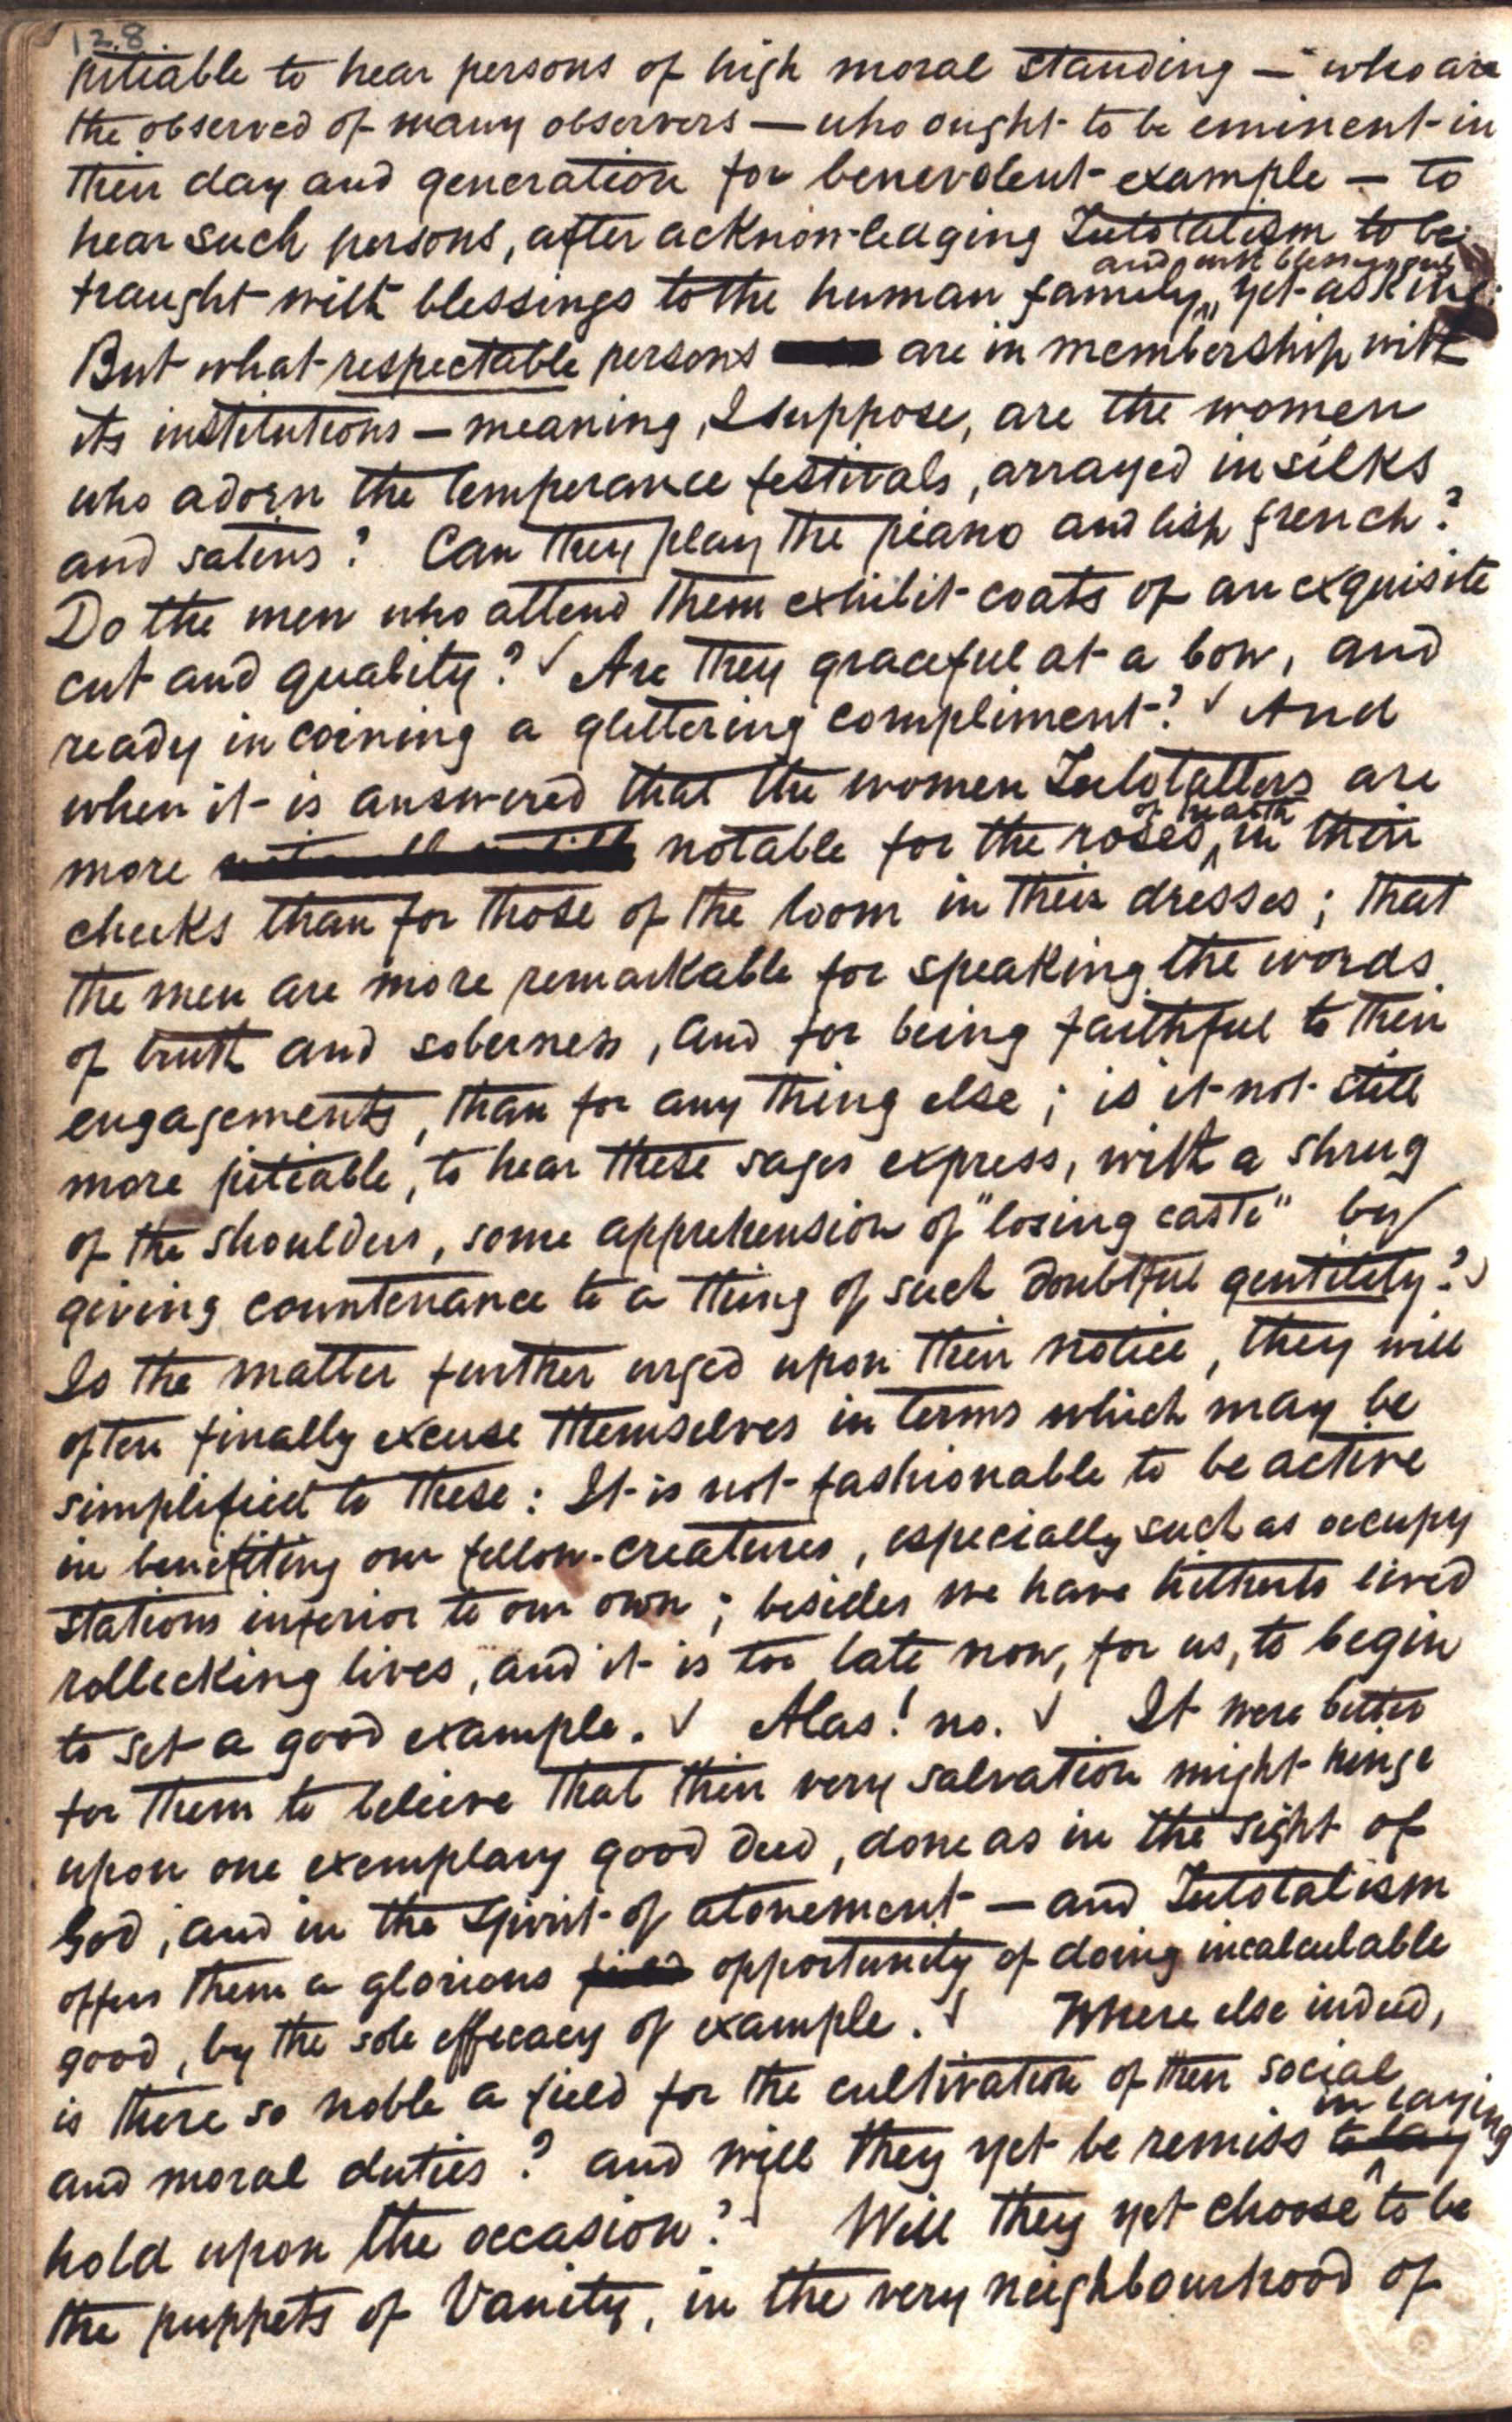 128
pitiable to hear persons of high moral standing — who are
the observed of many observers — who ought to be eminent in
their day and generation for benevolent example — to
hear such persons, after acknowledging Teetotalism to be
and with blessings
fraught with blessings to the human family, yet asking:
But what respectable persons are in membership with
its institutions — meaning, I suppose, are the women
who adorn the temperance festivals, arrayed in silks
and satins? Can they play the piano and lisp french?
Do the men who attend them exhibit coats of an exquisite
cut and quality? Are they graceful at a bow, and
ready in coining a glittering compliment? And
when it is answered that the women Teetotallers are
of health
more notable for the roses in their
cheeks than for those of the loom in their dresses; that
the men are more remarkable for speaking the words
of truth and soberness, and for being faithful to their
engagements, than for any thing else; is it not still
more pitiable, to hear these sages express, with a shrug
of the shoulders, some apprehension of "losing caste" by
giving countenance to a thing of such doubtful gentility?
Is the matter further urged upon their notice, they will
often finally excuse themselves in terms which may be
simplified to these: It is not fashionable to be active
in benefiting our fellow-creatures, especially such as occupy
stations inferior to our own; besides we have hitherto lived
rollecking lives, and it is too late now, for us, to begin
to set a good example. Alas! no. It were better
for them to believe that their very salvation might hinge
upon one exemplary good deed, done as in the sight of
God, and in the spirit of atonement — and Teetotalism
offers them a glorious field opportunity of doing incalculable
good, by the sole efficacy of example. Where else indeed,
is there so noble a field for the cultivation of their social
in laying
and moral duties? and will they yet be remiss to lay
hold upon the occasion? Will they yet choose to be
the puppets of Vanity, in the very neighbourhood of